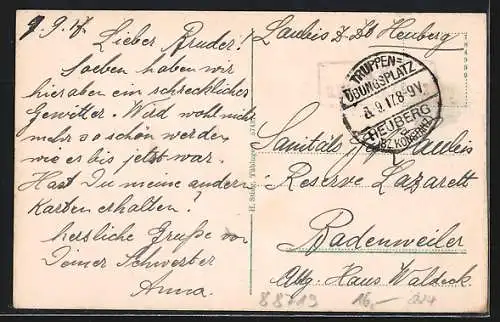 9.9.17.
Lieber Bruder!
Soeben haben wir
hier oben ein schreckliches
Gewitter. Wird wohl nicht
mehr so schön werden
wie er bis jetzt war.
Hast Du meine andern
Karten erhalten?
herzliche Grüße von
Deiner Schwester
Anna.
Laubis Heuberg
TRUPPEN=
ÜBUNGSPLATZ
9.17.8-9V.
HEUBERG
(BZ. KONSTANZ)
Sanitäts Laubis
Reserve Lazarett
Badenweiler
Abtg. Haus Waldeck.
88713 16,-